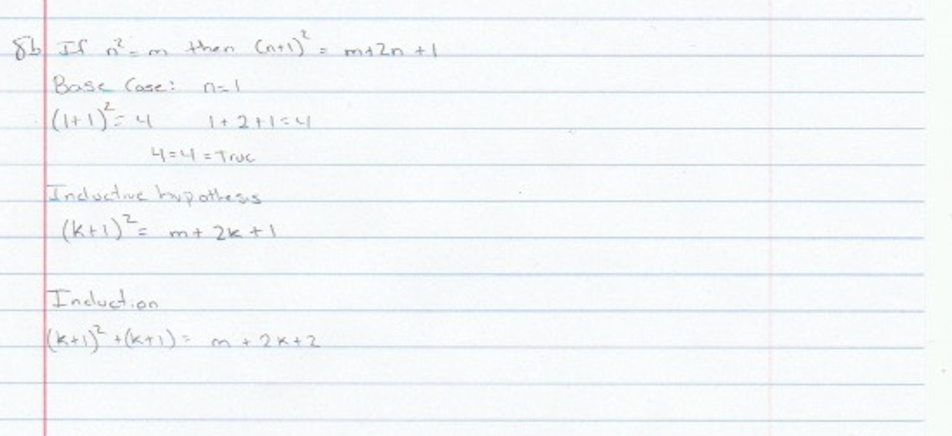 8b If n² = m then (n+1)² = m+2n+1
Base Case: n=1
(1+1)² = 4 1+2+1=4
4=4 = True
Inductive hypothesis
(k+1)² = m+2k+1
Induction
(k+1)² + (k+1) = m+2k+2